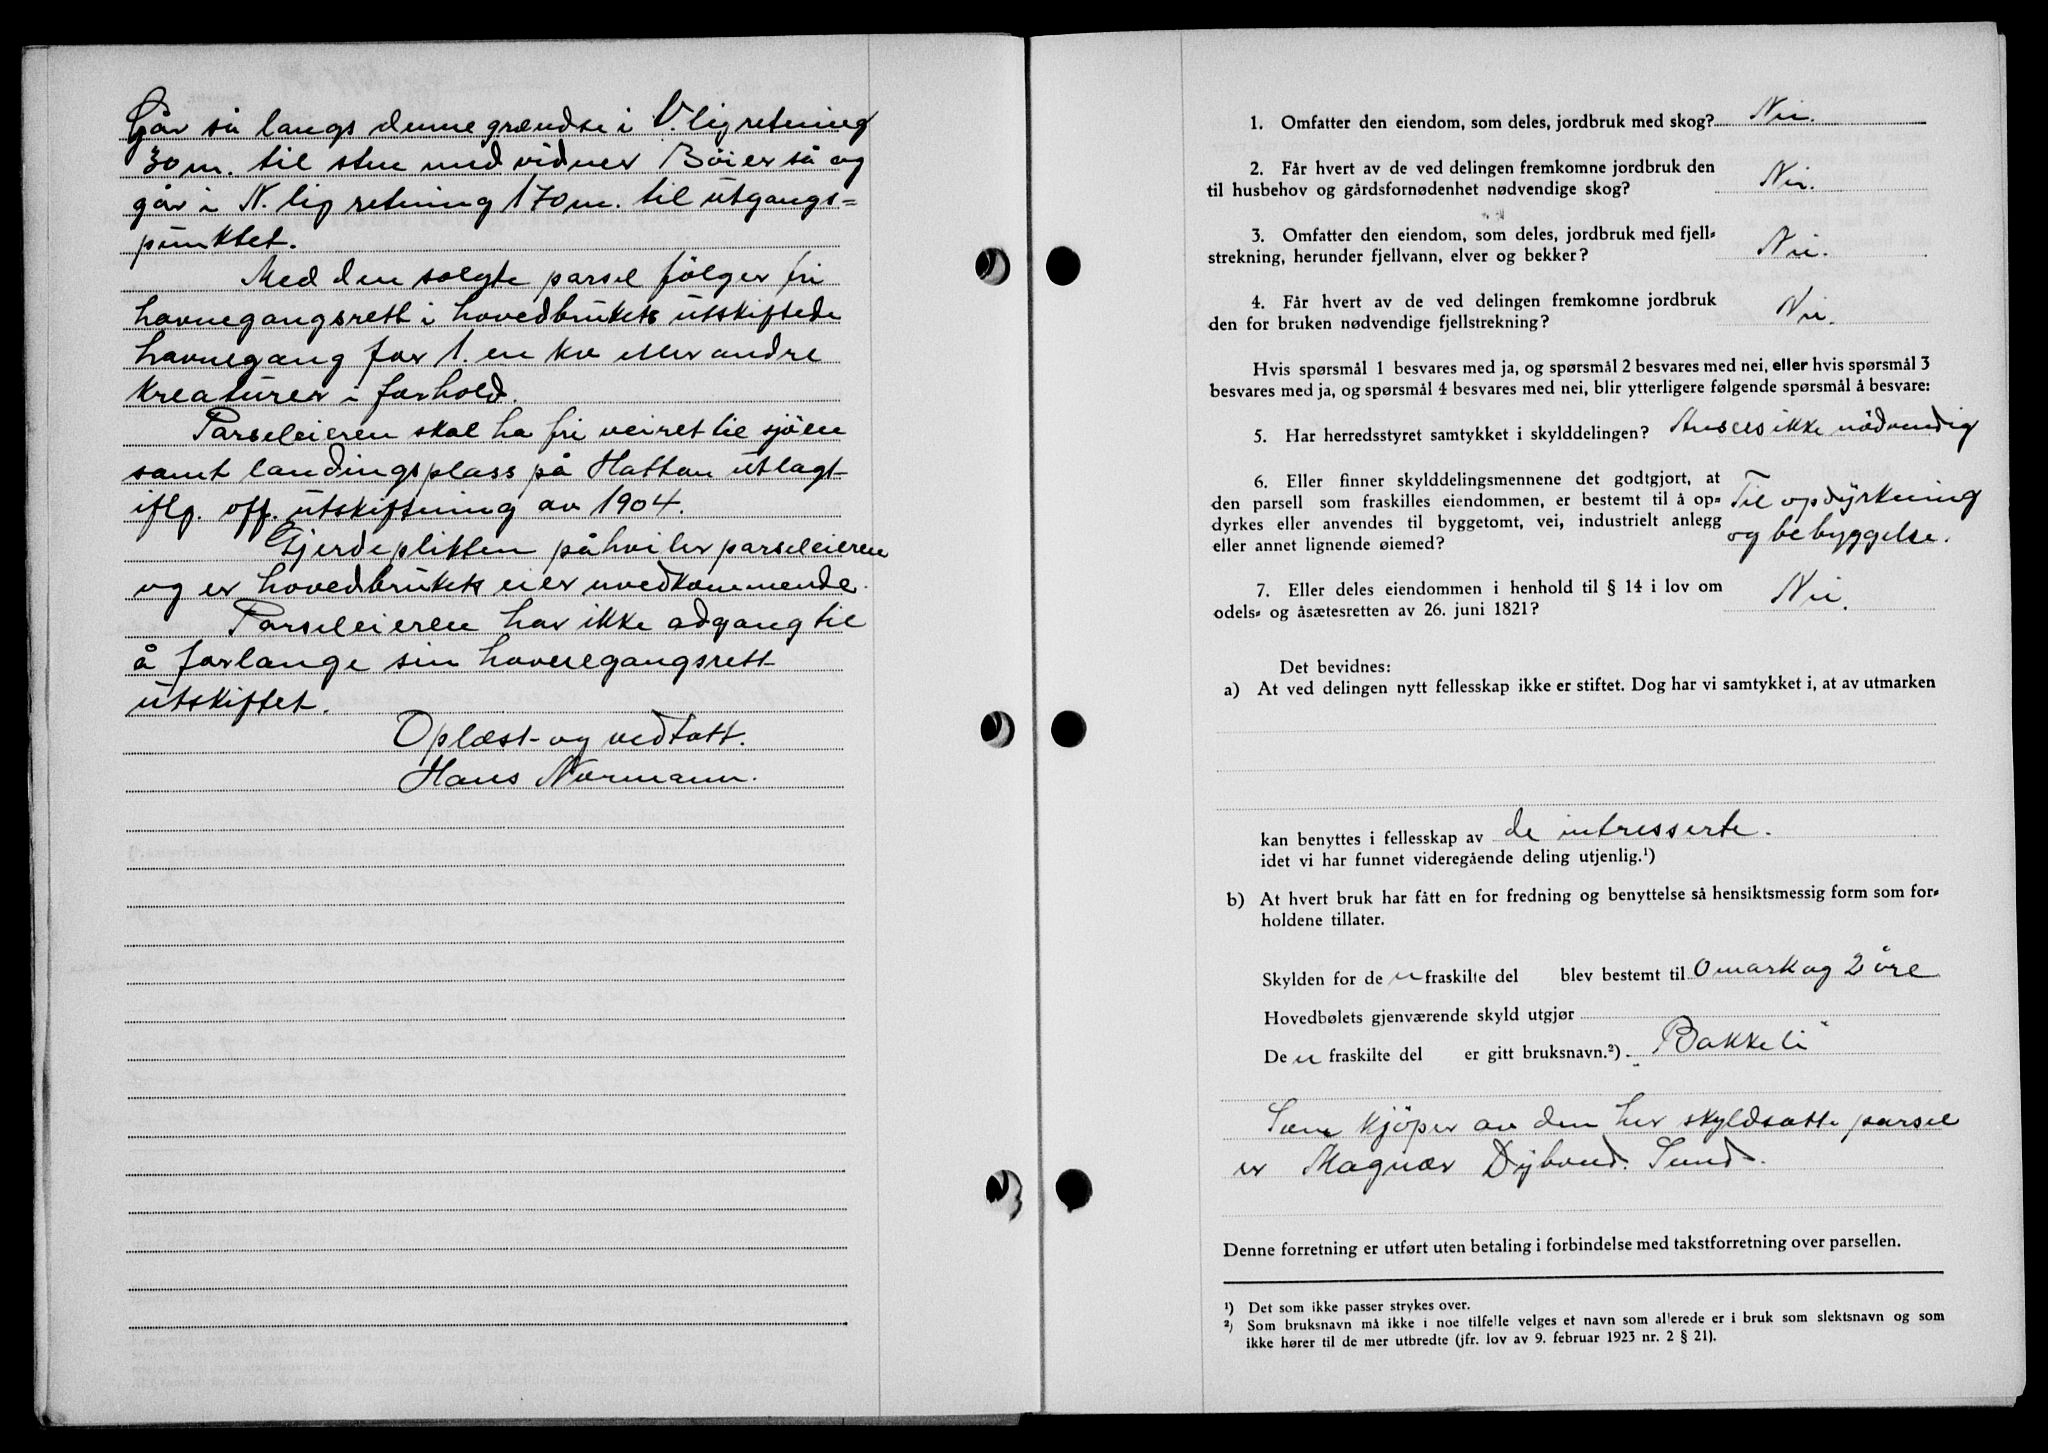 Går så langs denne grændse i V. lig retning
30 m. til sten med vidner Böier så og
går i N. lig retning 170 m. til utgangs=
punktet.
Med den solgte parsel fölger fri
havnegangsrett i hovedbrukets utskiftede
havnegang for 1. en ku eller andre
kreaturer i forhold.
Parseleieren skal ha fri veiret til sjöen
samt landingsplass på Hattan utlagt
iflg. off. utskiftning av 1904.
Gjerdeplikten påhviler parseleieren
og er hovedbrukets eier uvedkommende.
Parseleieren har ikke adgang til
å forlange sin havnegangsrett
utskiftet.
Oplæst og vedtatt.
Hans Normann.
1. Omfatter den eiendom, som deles, jordbruk med skog? Nei.
2. Får hvert av de ved delingen fremkomne jordbruk den
til husbehov og gårdsfornødenhet nødvendige skog? Nei.
3. Omfatter den eiendom, som deles, jordbruk med fjell=
strekning, herunder fjellvann, elver og bekker? Nei.
4. Får hvert av de ved delingen fremkomne jordbruk
den for bruken nødvendige fjellstrekning? Nei.
Hvis spørsmål 1 besvares med ja, og spørsmål 2 besvares med nei, eller hvis spørsmål 3
besvares med ja, og spørsmål 4 besvares med nei, blir ytterligere følgende spørsmål å besvare:
5. Har herredsstyret samtykket i skylddelingen? Ansees ikke nödvendig
6. Eller finner skylddelingsmennene det godtgjort, at
den parsell som fraskilles eiendommen, er bestemt til å op= Til opdyrkning
dyrkes eller anvendes til byggetomt, vei, industrielt anlegg
eller annet lignende øiemed? og bebyggelse.
7. Eller deles eiendommen i henhold til § 14 i lov om
odels= og åsætesretten av 26. juni 1821? Nei.
Det bevidnes:
a) At ved delingen nytt fellesskap ikke er stiftet. Dog har vi samtykket i, at av utmarken
kan benyttes i fellesskap av de intresserte.
idet vi har funnet videregående deling utjenlig.¹)
b) At hvert bruk har fått en for fredning og benyttelse så hensiktsmessig form som for=
holdene tillater.
Skylden for de n fraskilte del blev bestemt til 0 mark og 2 öre
Hovedbølets gjenværende skyld utgjør
De n fraskilte del er gitt bruksnavn.²) „Bakkeli"
Som kjöper av den her skyldsatte parsel
er Magnar Dybvad. Sund.
Denne forretning er utført uten betaling i forbindelse med takstforretning over parsellen.
¹) Det som ikke passer strykes over.
²) Som bruksnavn må ikke i noe tilfelle velges et navn som allerede er i bruk som slektsnavn og som
ikke hører til de mer utbredte (jfr. lov av 9. februar 1923 nr. 2 § 21).